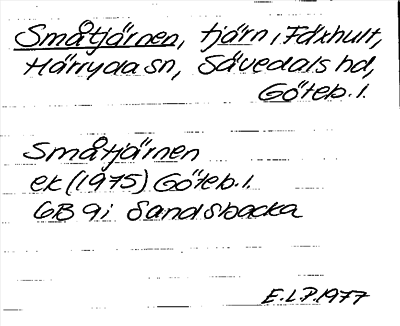 Småtjärnen, tjärn i Fäxhult,
Härryda sn, Sävedals hd,
Göteb. l.
Småtjärnen
ek (1975) Göteb. l.
6B 9i Sandsbacka
E.L.P. 1977